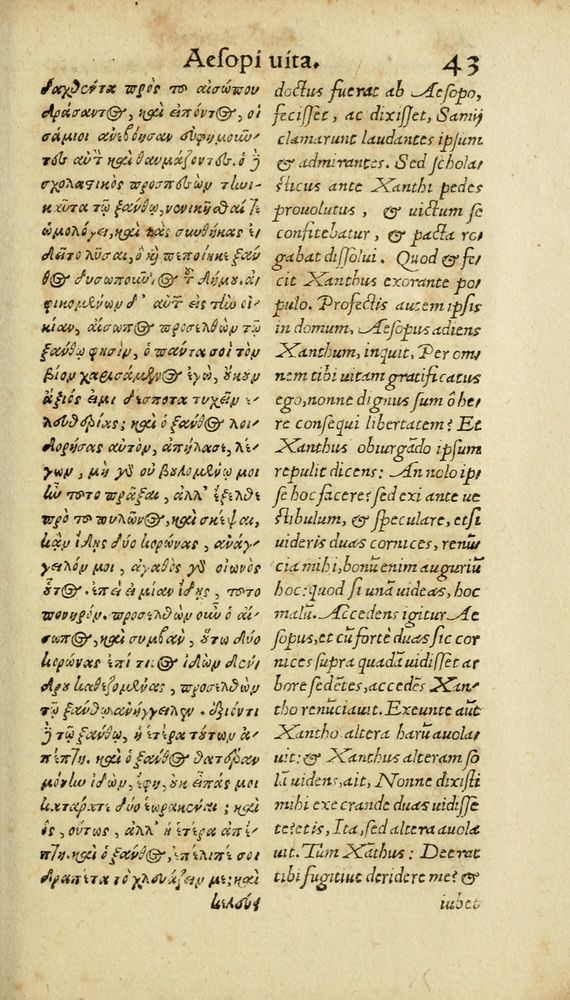 Aesopi uita.
43
δαχθέντα πρὸς τοῦ αἰσώπου
δράσαντος, καὶ εἰπόντος, οἱ
σάμιοι ἀνεβόησαν εὐφημοῦν
τες αὐτὸν καὶ θαυμάζοντες. ὁ δὲ
σχολαστικὸς προσπεσὼν τηνι
καῦτα τῷ ξάνθῳ, νενικῆσθαί τε
ὡμολόγει, καὶ τὰς συνθήκας ἐ
δεῖτο λῦσαι, ὃ καὶ πεποίηκε ξάν
θος δυσωποῦντος τοῦ δήμου. ἀ
φικομένων δ' αὐτῶν εἰς τὴν οἰ
κίαν, αἴσωπος προσελθὼν τῷ
ξάνθῳ φησὶν, ὁ πάντα σοι τὸν
βίον χαρισάμενος ἐγὼ, οὐκουν
ἄξιός εἰμι δέσποτα τυχεῖν ἐ
λευθερίας; καὶ ὁ ξάνθος λοι
δορήσας αὐτὸν, ἀπήλασε, λέ
γων, μὴ γὰρ οὐ βουλομένῳ μοι
ἦν τοῦτο πρᾶξαι, ἀλλ' ἔξελθε
πρὸ τοῦ πυλῶνος, καὶ σκέψαι,
κἂν ἴδῃς δύο κορώνας, ἀνάγ
γειλόν μοι, ἀγαθὸς γὰρ οἰωνὸς
οὗτος. ἐπεὶ εἰ μίαν ἴδῃς, τοῦτο
πονηρόν. προσελθὼν οὖν ὁ αἴ
σωπος, καὶ συμβὰν, οὕτω δύο
κορώνας ἐπί τινος ἰδὼν δέν
δρου καθεζομένας, προσελθὼν
τῷ ξάνθῳ ἀνήγγειλεν. ἐξιόντι
δὲ τῷ ξάνθῳ, ἡ ἑτέρα τούτων ἀ
πέπτη. καὶ ὁ ξάνθος θατέραν
μόνην ἰδὼν, ἔφη, οὐκ εἶπάς μοι
κατάρατε δύο ἑωρακέναι; καὶ
ὃς, οὕτως, ἀλλ' ἡ ἑτέρα ἀπέ
πτη. καὶ ὁ ξάνθος, ἐπέλιπέ σοι
δραπέτα τὸ χλευάζειν με; καὶ
κελεύει
doctus fuerat ab Aesopo,
fecisset, ac dixisset, Samij
clamarunt laudantes ipsum
& admirantes. Sed schola/
sticus ante Xanthi pedes
prouolutus, & uictum se
confitebatur, & pacta ro/
gabat dissolui. Quod & fe/
cit Xanthus exorante po/
pulo. Profectis autem ipsis
in domum, Aesopus adiens
Xanthum, inquit, Per om/
nem tibi uitam gratificatus
ego, nonne dignus sum ô he/
re consequi libertatem? Et
Xanthus obiurgādo ipsum
repulit dicens: An nolo ip/
se hoc facere? sed exi ante ue
stibulum, & speculare, etsi
uideris duas cornices, renū/
cia mihi, bonū enim auguriū
hoc: quod si unā uideas, hoc
malū. Accedens igitur Ae
sopus, et cū fortè duas sic cor
nices supra quadā uidisset ar
bore sedētes, accedēs Xan/
tho renūciauit. Exeunte aūt
Xantho altera harū auola/
uit: & Xanthus alteram so
lā uidens, ait, Nonne dixisti
mihi execrande duas uidisse
te? et is, Ita, sed altera auola
uit. Tūm Xāthus: Deerat
tibi fugitiue deridere me? &
iubet